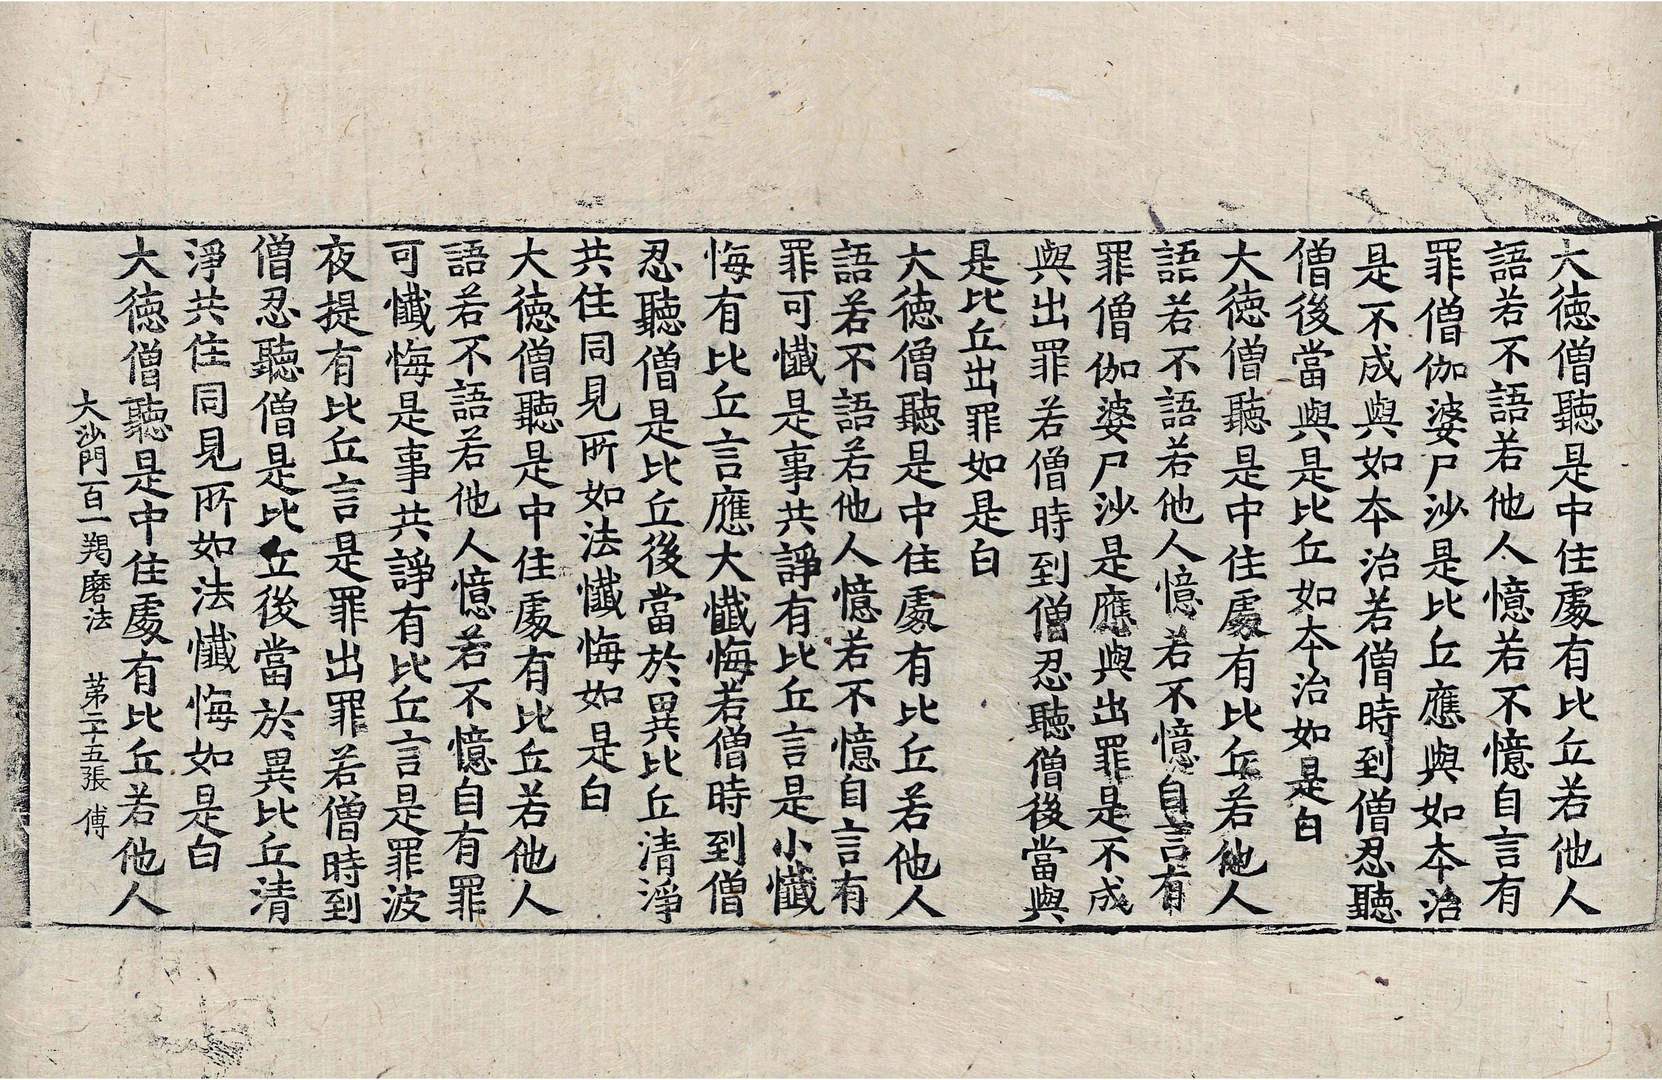 大德僧聽是中住處有比丘若他人
語若不語若他人憶若不憶自言有
罪僧伽婆尸沙是比丘應與如本治
是不成與如本治若僧時到僧忍聽
僧後當與是比丘如本治如是白
大德僧聽是中住處有比丘若他人
語若不語若他人憶若不憶自言有
罪僧伽婆尸沙是應與出罪是不成
與出罪若僧時到僧忍聽僧後當與
是比丘出罪如是白
大德僧聽是中住處有比丘若他人
語若不語若他人憶若不憶自言有
罪可懺是事共諍有比丘言是小懺
悔有比丘言應大懺悔若僧時到僧
忍聽僧是比丘後當於異比丘清淨
共住同見所如法懺悔如是白
大德僧聽是中住處有比丘若他人
語若不語若他人憶若不憶自有罪
可懺悔是事共諍有比丘言是罪波
夜提有比丘言是罪出罪若僧時到
僧忍聽僧是比丘後當於異比丘清
淨共住同見所如法懺悔如是白
大德僧聽是中住處有比丘若他人
大沙門百一羯磨法 第二十五張 傅